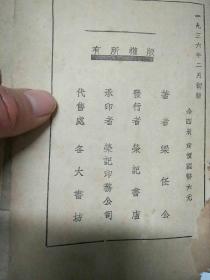 一九三六年二月初版
全四册 實價國幣六元
有所權版
著者 梁任公
發行者 榮記書店
承印者 榮記印務公司
代售處 各大書坊